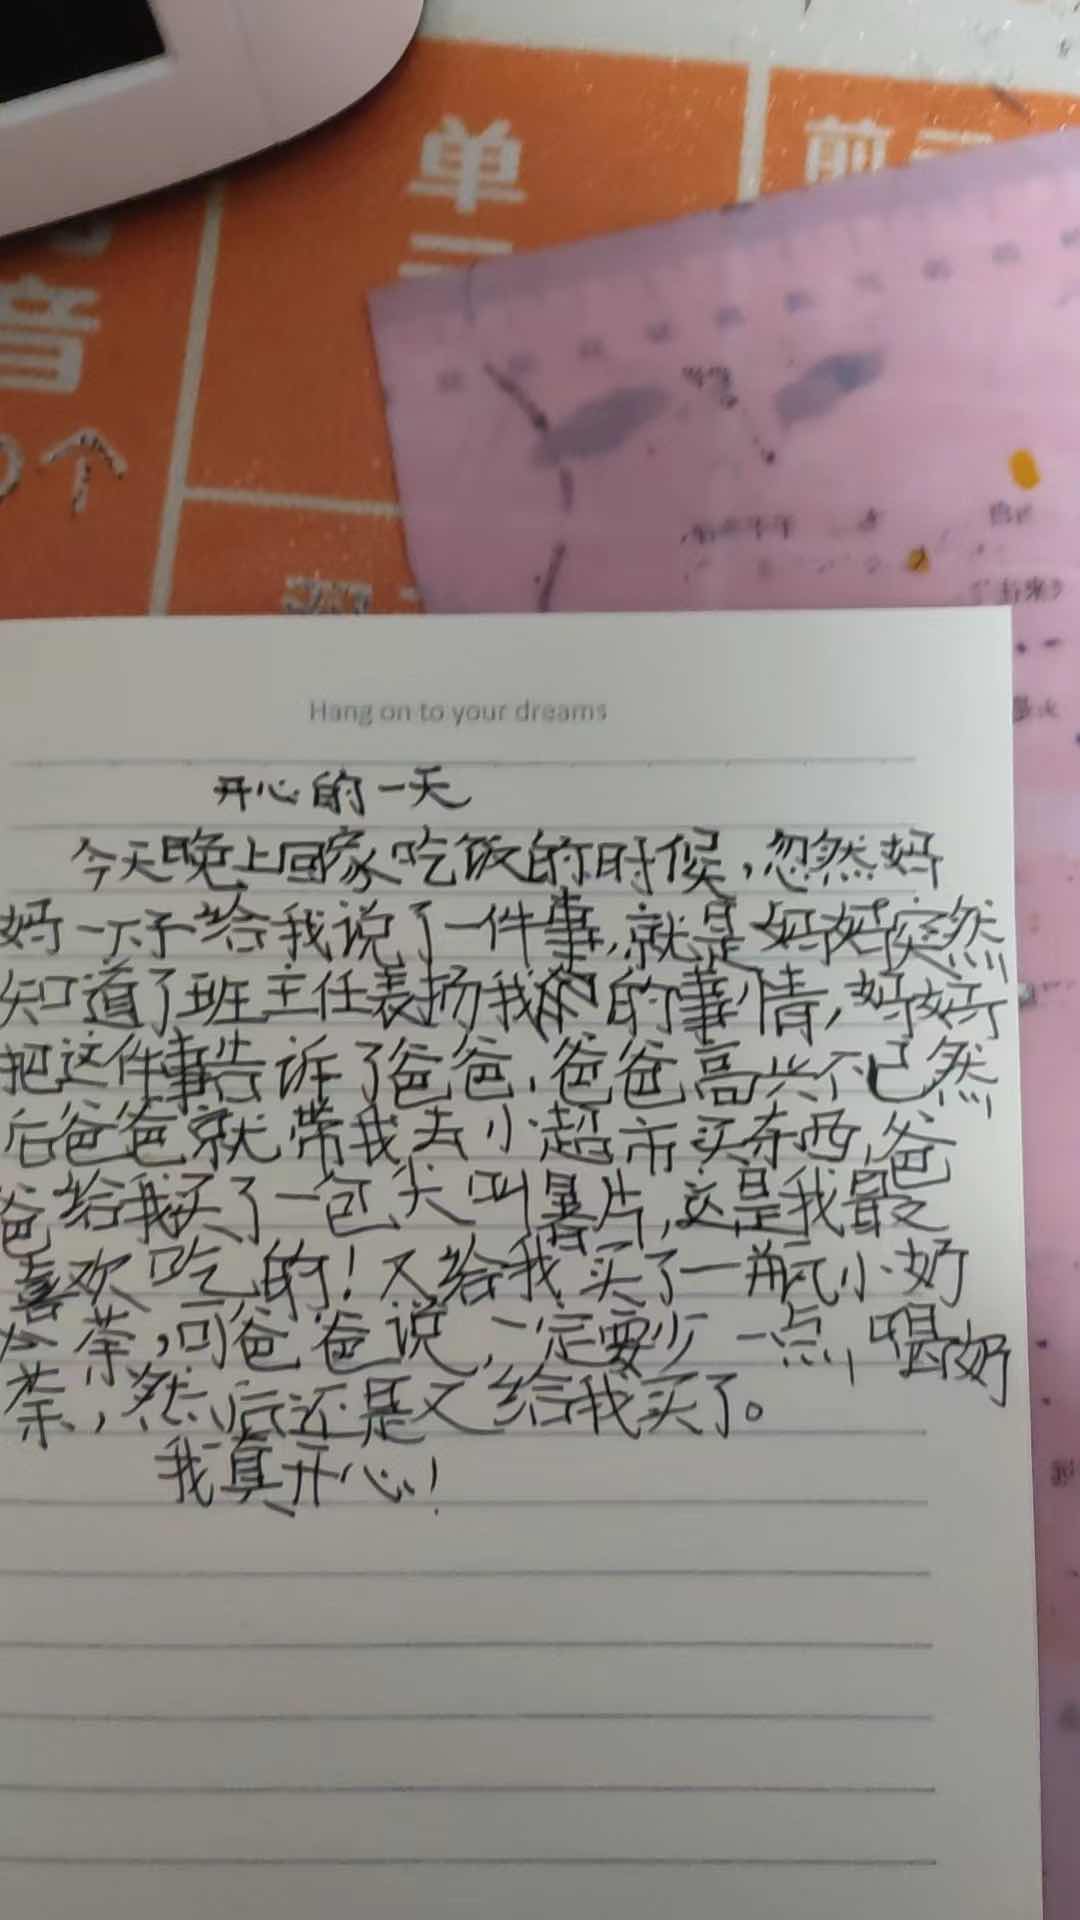 单
前三
音
个
Hang on to your dreams
开心的一天
今天晚上回家吃饭的时候,忽然妈
妈一下子给我说了一件事,就是妈妈突然
知道了班主任表扬我的的事情,妈妈
把这件事告诉了爸爸,爸爸高兴不已然
后爸爸就带我去小超市买东西,爸
爸给我买了一包大叫暑片,这是我最
喜欢吃的!又给我买了一瓶小奶
茶,可爸爸说,一定要少一点,喝奶
茶,然后还是又给我买了。
我真开心!